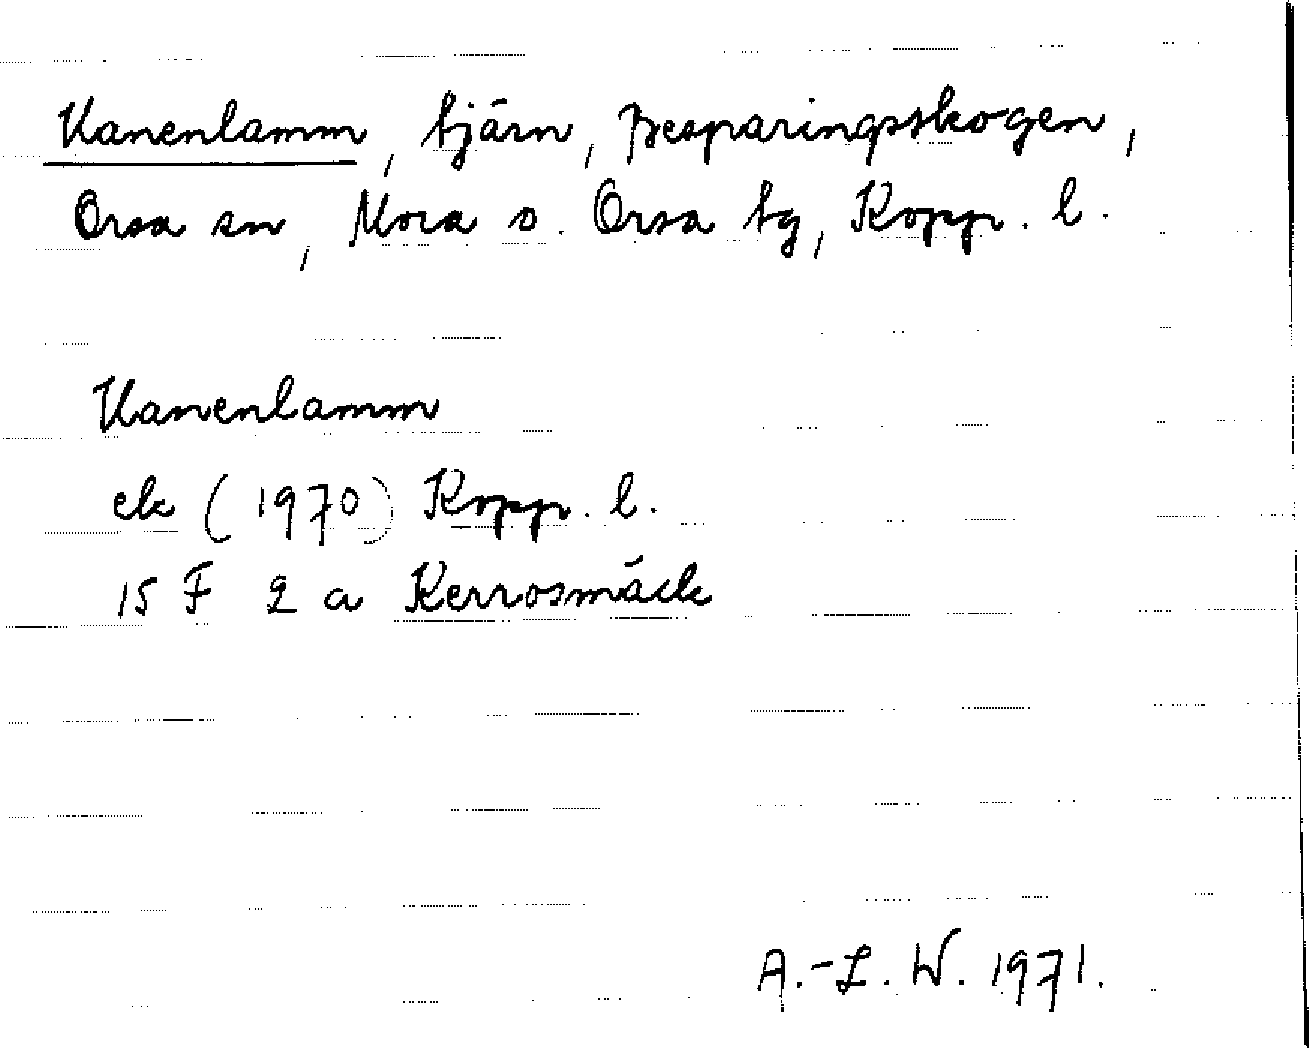 Vanenlamm, tjärn, Besparingsskogen,
Orsa sn, Mora o. Orsa tg, Kopp. l.
Vanenlamm
ek (1970) Kopp. l.
15 F 2 a Kerrosmäck
A.-L. W. 1971.